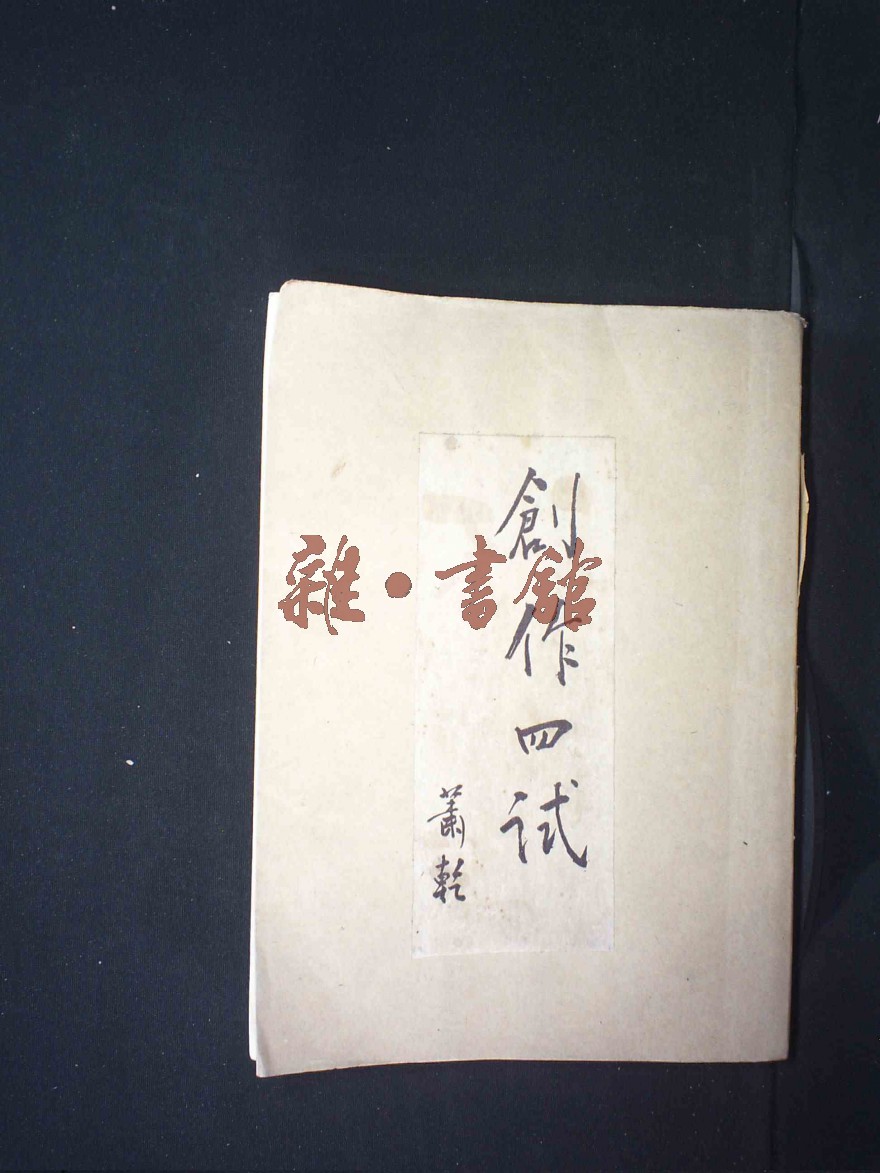 創作四試
蕭乾
雜·書館